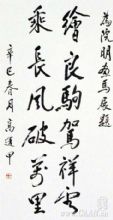 為院明畫馬展題
繪良駒駕祥雲
乘長風破萬里
辛巳春月高道甲